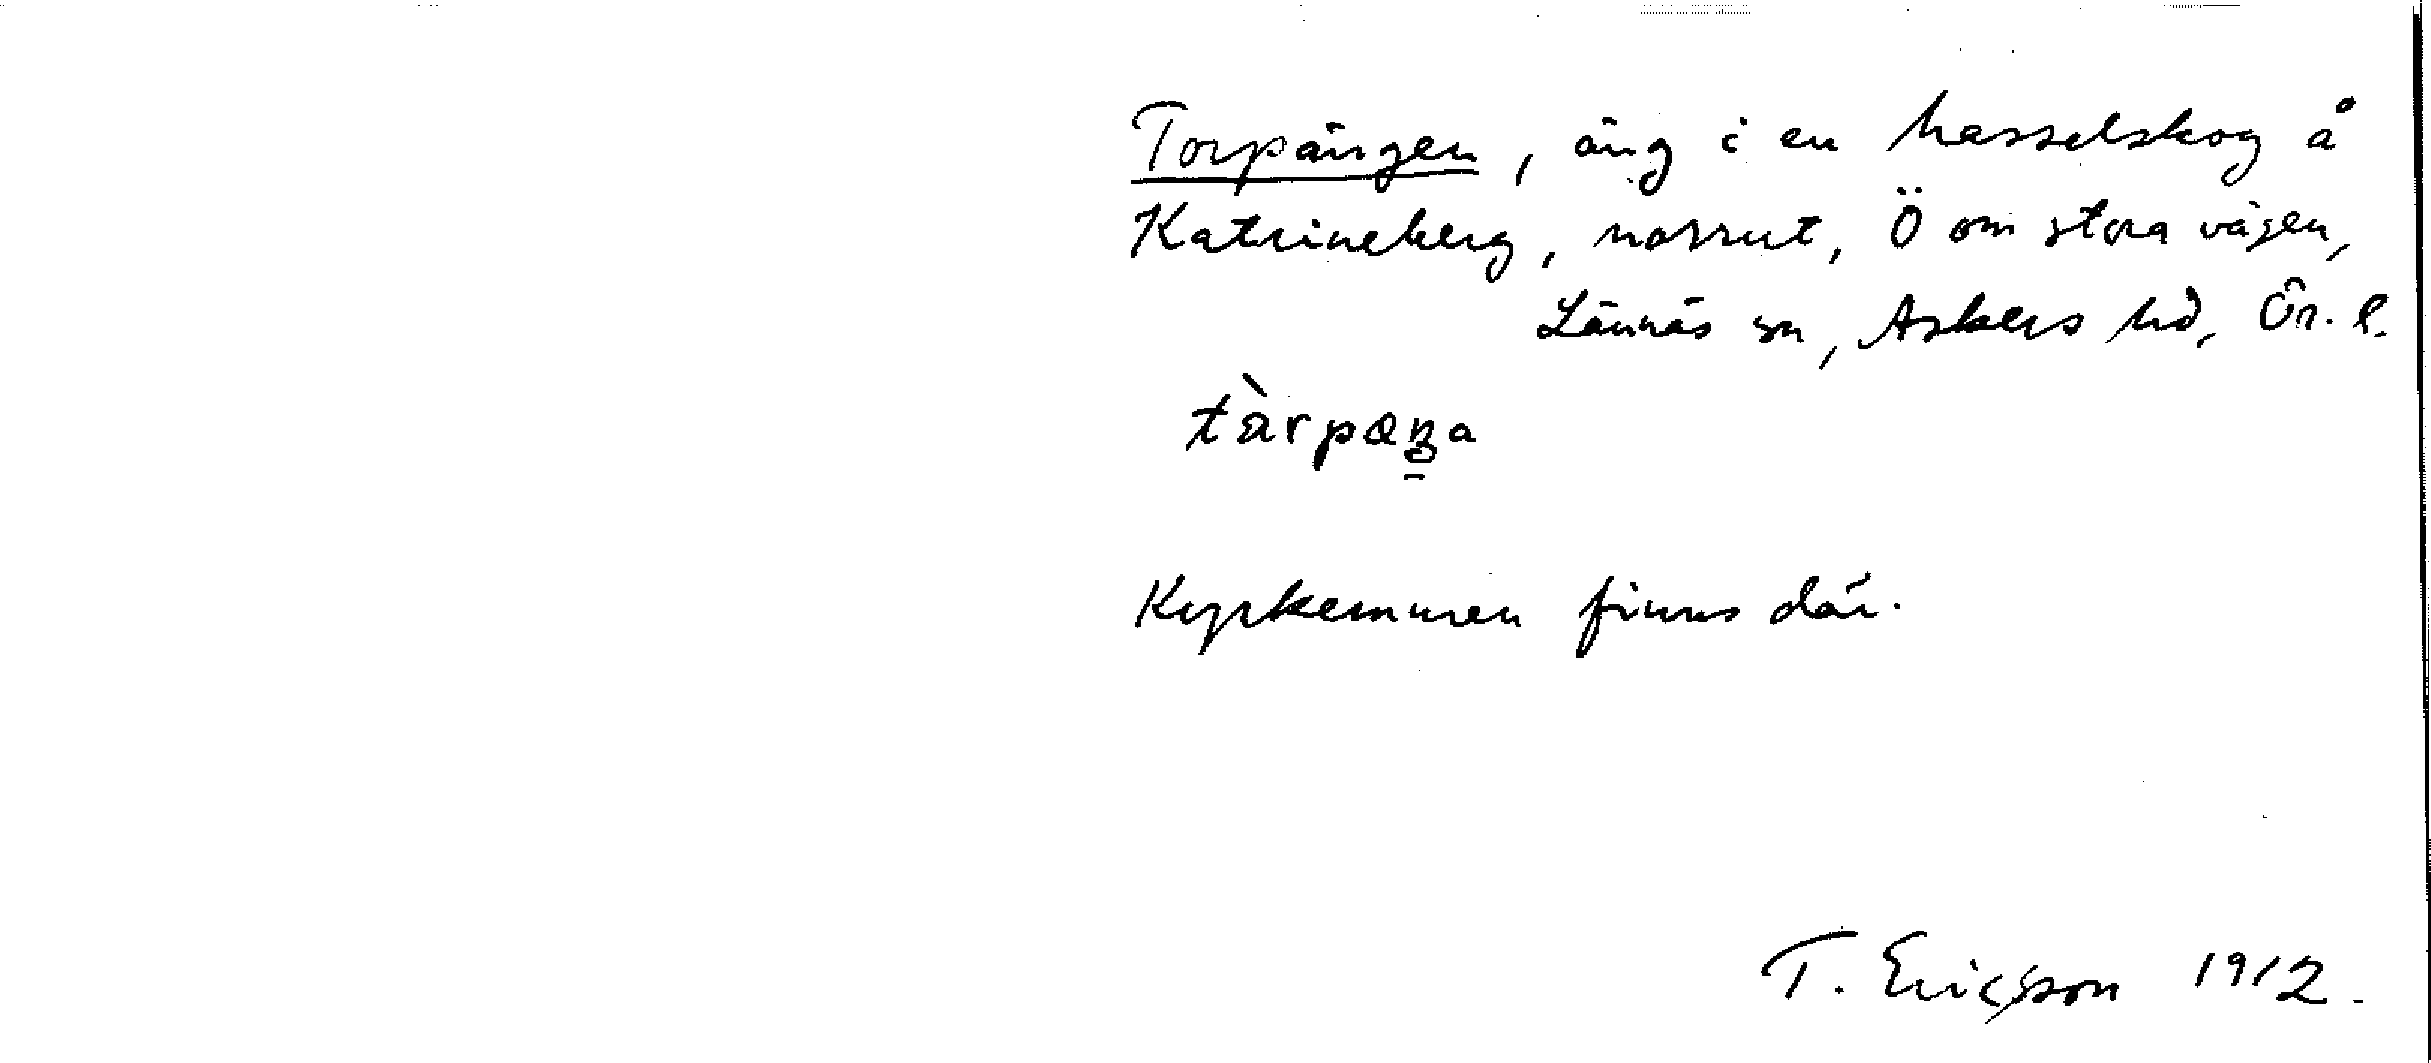 Torpängen, äng i en hasselskog å
Katrineberg, norrut, Ö om stora vägen,
Lännäs sn, Askers hd, Ör. l.
tàrpæŋa
Kyrkemuren finns där.
T. Ericsson 1912.